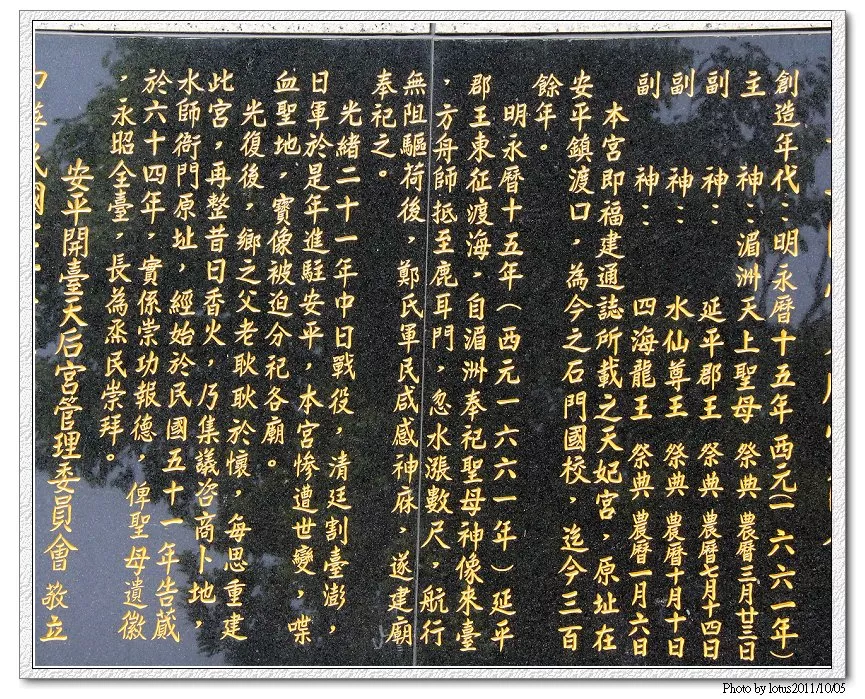 創造年代：明永曆十五年西元(一六六一年)
主　神：湄洲天上聖母 祭典 農曆三月廿三日
副　神：　延平郡王 祭典 農曆七月十四日
副　神：　水仙尊王 祭典 農曆十月十日
副　神：　四海龍王 祭典 農曆一月六日
本宮即福建通誌所載之天妃宮，原址在
安平鎮渡口，為今之石門國校，迄今三百
餘年。
明永曆十五年（西元一六六一年）延平
郡王東征渡海，自湄洲奉祀聖母神像來臺
，方舟師抵至鹿耳門，忽水漲數尺，航行
無阻驅荷後，鄭氏軍民咸感神庥，遂建廟
奉祀之。
光緒二十一年中日戰役，清廷割臺澎，
日軍於是年進駐安平，本宮慘遭世變，喋
血聖地，寶像被迫分祀各廟。
光復後，鄉之父老耿耿於懷，每思重建
此宮，再整昔日香火，乃集議咨商卜地，
水師衙門原址，經始於民國五十一年告蕆
於六十四年，實係崇功報德，俾聖母遺徽
，永昭全臺，長為烝民崇拜。
安平開臺天后宮管理委員會　敬立
中華民國
Photo by lotus2011/10/05